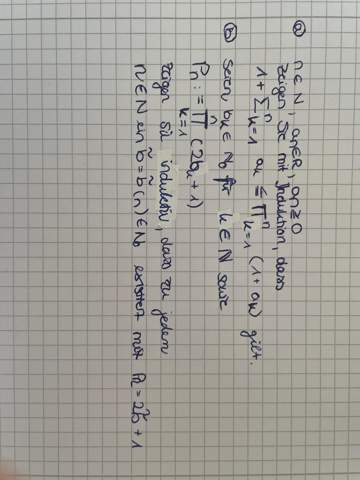 (a) n ∈ N, an ∈ R, an ≥ 0
Zeigen Sie mit Induktion, dass
1 + Σⁿₖ₌₁ aₖ ≤ Πⁿₖ₌₁ (1 + aₖ) gilt.
(b) Seien bₖ ∈ N₀ für k ∈ N sowie
Pₙ := Πⁿₖ₌₁ (2bₖ + 1)
Zeigen Sie induktiv, dass zu jedem
n ∈ N ein b̃ = b̃(n) ∈ N₀ existiert mit Pₙ = 2b̃ + 1